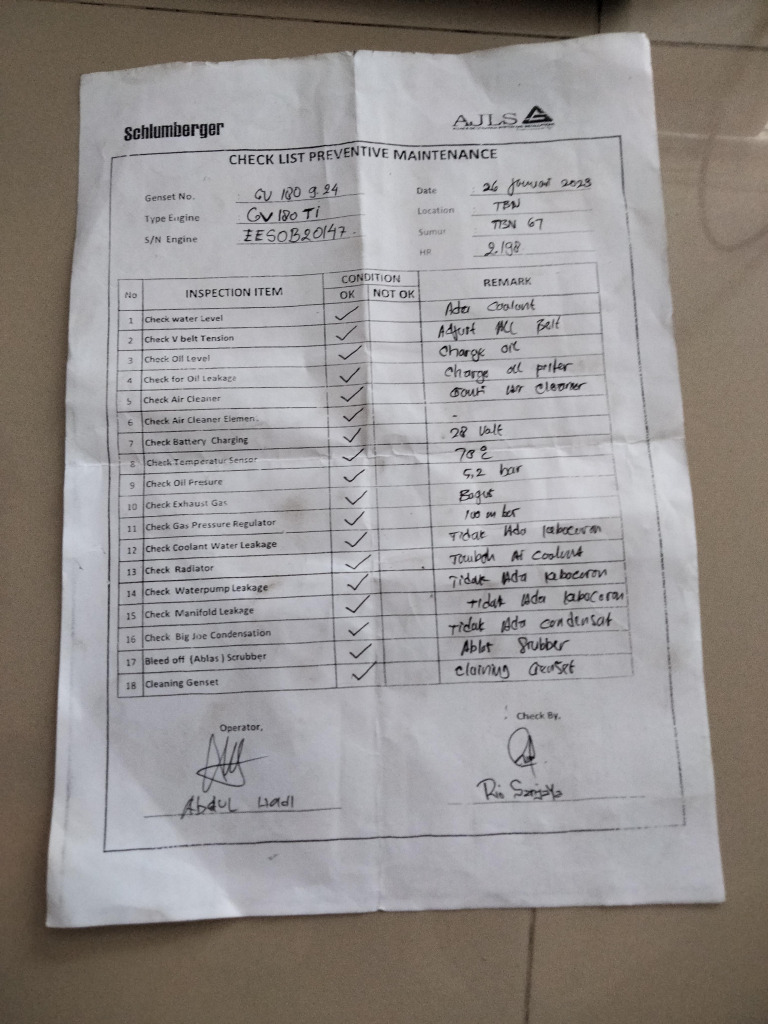 Schlumberger
AJLS
CHECK LIST PREVENTIVE MAINTENANCE
Genset No. : GV 180 9.24
Type Engine : GV 180 Ti
S/N Engine : EESOB20147.
Date : 26 Januari 2023
Location : TBN
Sumur : TBN 67
HR : 2.198
No INSPECTION ITEM CONDITION REMARK
OK NOT OK
1 Check water Level ✓ Coolant
2 Check V belt Tension ✓ Adjust All Belt
3 Check Oil Level ✓ Charge oil
4 Check for Oil Leakage ✓ Charge
5 Check Air Cleaner ✓ Cleaner
6 Check Air Cleaner Elemen. ✓ -
7 Check Battery Charging ✓ 28 Valt
8 Check Temperatur Sensor ✓ 78°C
9 Check Oil Presure ✓ 5,2 bar
10 Check Exhaust Gas ✓ Bagus
11 Check Gas Pressure Regulator ✓ 100 m bar
12 Check Coolant Water Leakage ✓ Tidak Ada kaboceran
13 Check Radiator ✓ Coolant
14 Check Waterpump Leakage ✓ Tidak Ada kaboceran
15 Check Manifold Leakage ✓ tidak Ada kaboceran
16 Check Big Joe Condensation ✓ Tidak Ada condensat
17 Bleed off (Ablas) Scrubber ✓ Srubber
18 Cleaning Genset ✓ Claining Genset
Operator,
Abdul Hadi
Check By,